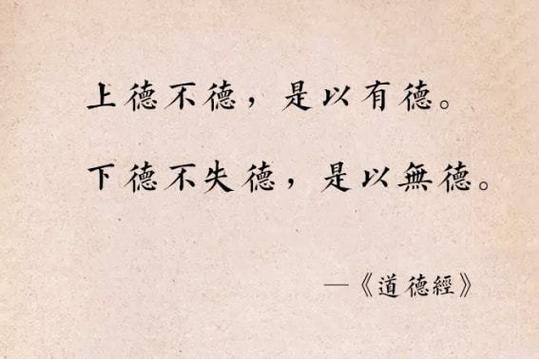 上德不德，是以有德。
下德不失德，是以無德。
—《道德經》